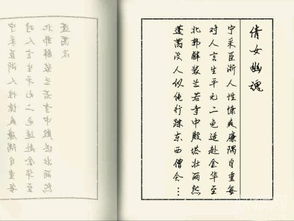 倩女幽魂
宁采臣浙人性慷爽廉隅自重每
对人言生平无二色适赴金华至
北郭解装兰若寺中殿塔壮丽然
蓬蒿没人似绝行踪东西僧舍…